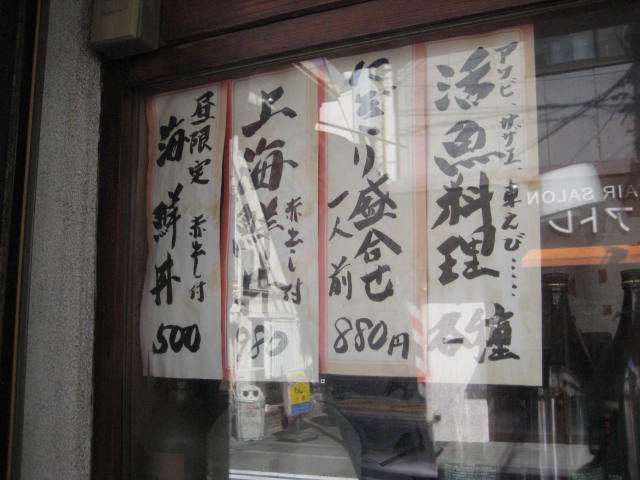 アワビ、サザエ、車えび……
活魚料理
盛合せ
一人前
880円
上海鮮丼
赤出し付
980
昼限定
海鮮丼
赤出し付
500
HAIR SALON
アトレ